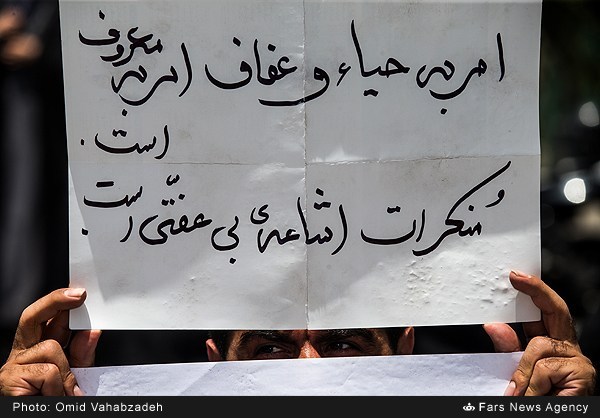 امر به حیاء و عفاف امر به معروف
است.
مُنکرات اشاعهٔ بی عفتّی است
Photo: Omid Vahabzadeh
Fars News Agency